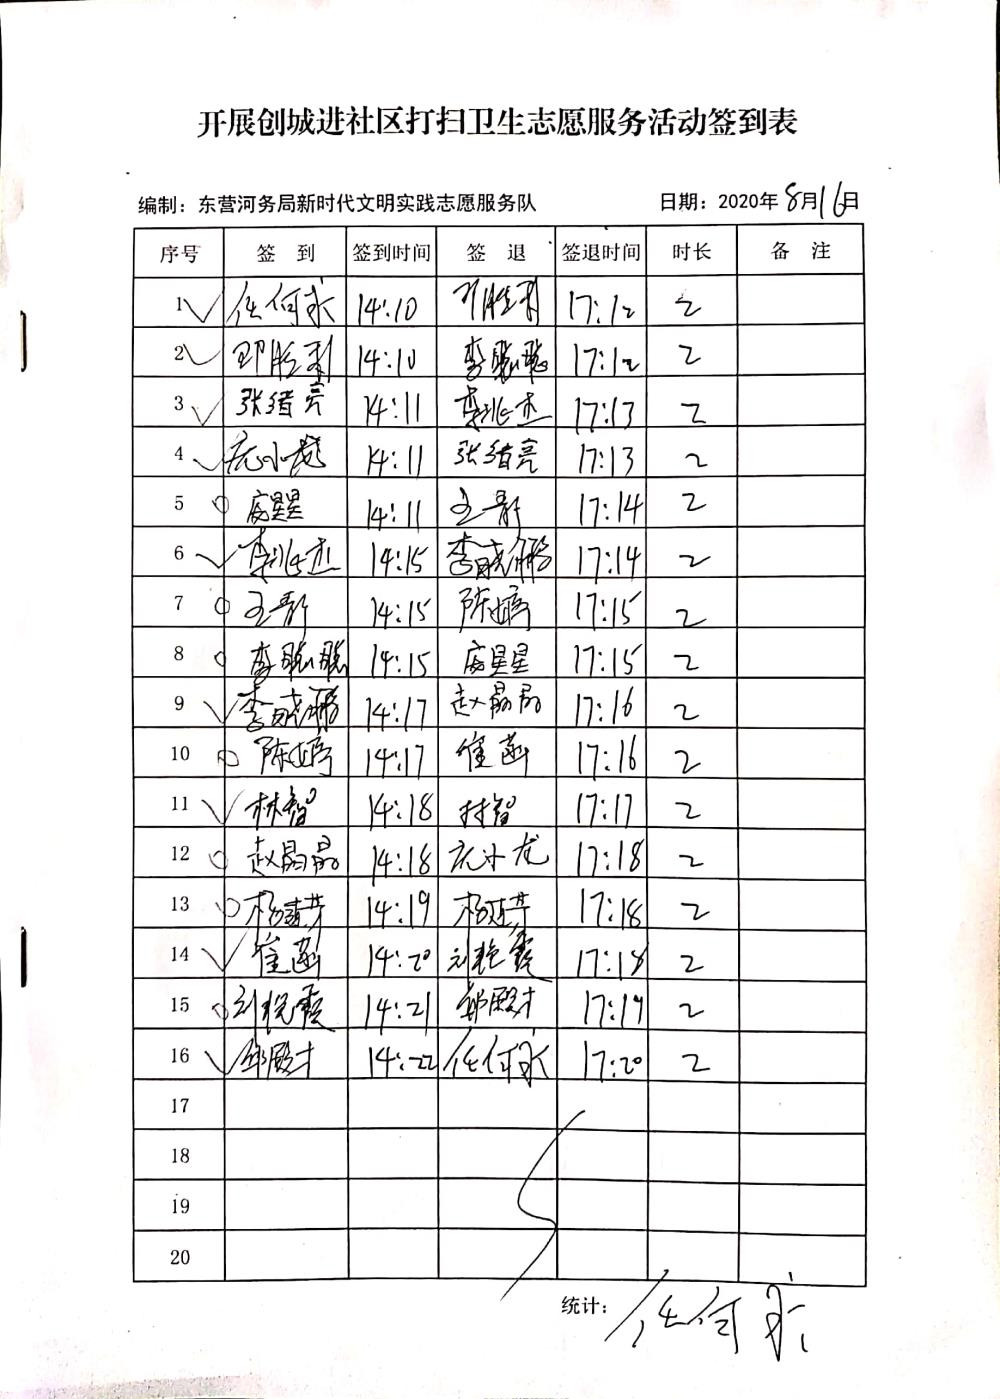 开展创城进社区打扫卫生志愿服务活动签到表
编制：东营河务局新时代文明实践志愿服务队 日期：2020年8月16日
序号 签 到 签到时间 签 退 签退时间 时长 备 注
1 任何永 14:10 邓胜利 17:12 2
2 邓胜利 14:10 李聪聪 17:12 2
3 张绪亮 14:11 李兆杰 17:13 2
4 庞小龙 14:11 张绪亮 17:13 2
5 庞星星 14:11 王静 17:14 2
6 李兆杰 14:15 李晓鹏 17:14 2
7 王静 14:15 陈婷 17:15 2
8 李聪聪 14:15 庞星星 17:15 2
9 李晓鹏 14:17 赵晶晶 17:16 2
10 陈婷 14:17 崔菡 17:16 2
11 林智 14:18 林智 17:17 2
12 赵晶晶 14:18 庞小龙 17:18 2
13 杨 14:19 杨 17:18 2
14 崔菡 14:20 刘艳霞 17:18 2
15 刘艳霞 14:21 殿才 17:19 2
16 殿才 14:22 任何永 17:20 2
17
18
19
20
统计：任何永